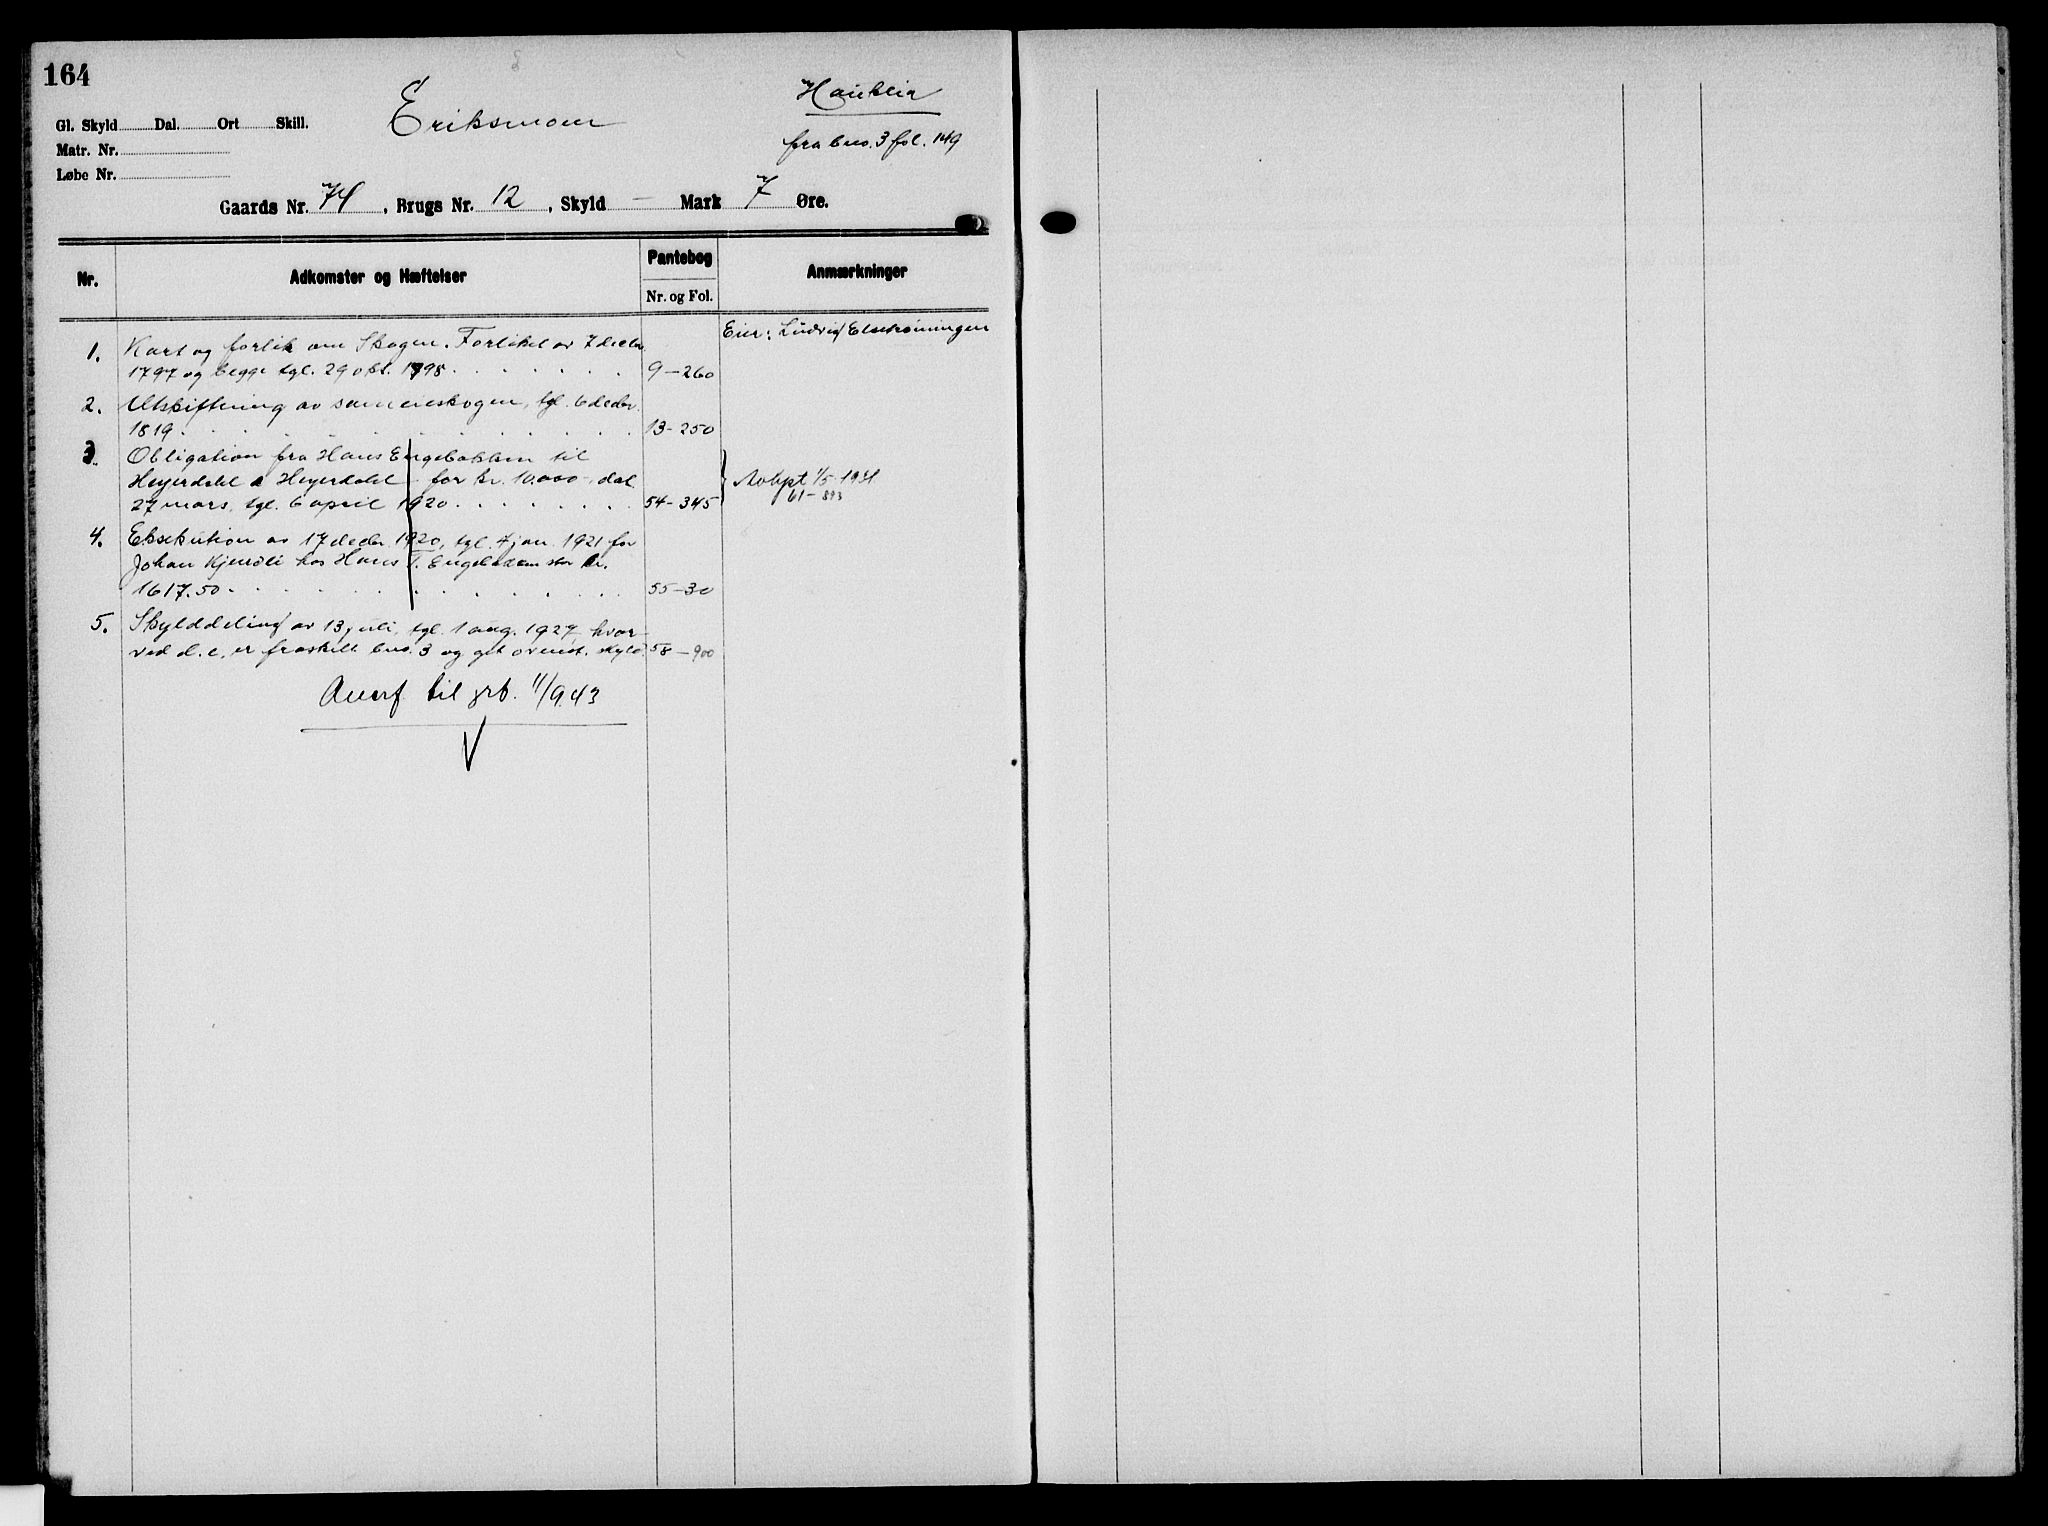 164
Eriksmoen
Hauklia
Gl. Skyld Dal. Ort Skill.
fra bno. 3 fol. 149
Matr. Nr.
Løbe Nr.
Gaards Nr. 74, Brugs Nr. 12, Skyld — Mark 7 Øre.
Nr. Adkomster og Hæftelser Pantebog Nr. og Fol. Anmærkninger
Eier: Ludvig
1. Kart og forlik om Skogen. Forliket av 7 decbr.
1797 og begge tgl. 29 okt. 1798. 9-260
2. Utskiftning av sameieskogen, tgl. 6 decbr.
1819. 13-250
3. Obligation fra Hans Engebakken til
Heyerdahl & Heyerdahl for kr. 10.000-, dat.
27 mars, tgl. 6 april 1920. 54-345
Avlyst 1/5-1931
61-893
4. Eksekution av 17 decbr. 1920, tgl. 4 jan. 1921 for
Johan Kjensli hos Hans T. kr.
1617.50 55-30
5. Skylddeling av 13 juli, tgl. 1 aug. 1927, hvor-
ved d. e. er fraskilt bno. 3 og git ovenst. skyld. 58-900
Overf til grb. 11/9.43